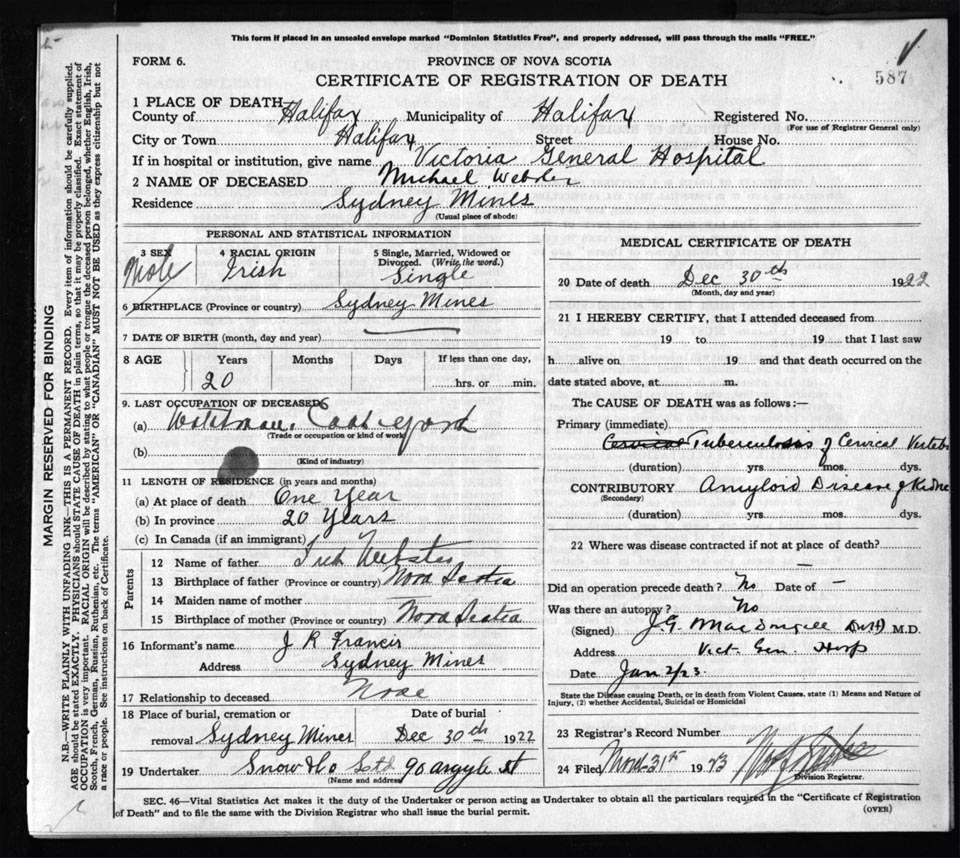 This form if placed in an unsealed envelope marked "Dominion Statistics Free", and properly addressed, will pass through the mails "FREE."
FORM 6.
PROVINCE OF NOVA SCOTIA
587
CERTIFICATE OF REGISTRATION OF DEATH
1 PLACE OF DEATH
County of Halifax Municipality of Halifax Registered No.
(For use of Registrar General only)
City or Town Halifax Street House No.
If in hospital or institution, give name Victoria General Hospital
2 NAME OF DECEASED Michael Webster
Residence Sydney Mines
(Usual place of abode)
PERSONAL AND STATISTICAL INFORMATION
3 SEX Male
4 RACIAL ORIGIN Irish
5 Single, Married, Widowed or Divorced. (Write the word.) Single
6 BIRTHPLACE (Province or country) Sydney Mines
7 DATE OF BIRTH (month, day and year)
8 AGE Years Months Days If less than one day,
20 hrs. or min.
9. LAST OCCUPATION OF DECEASED
(a) Watchman,
(Trade or occupation or kind of work)
(b)
(Kind of industry)
11 LENGTH OF RESIDENCE (in years and months)
(a) At place of death One Year
(b) In province 20 Years
(c) In Canada (if an immigrant)
Parents
12 Name of father Webster
13 Birthplace of father (Province or country) Nova Scotia
14 Maiden name of mother
15 Birthplace of mother (Province or country) Nova Scotia
16 Informant's name J R Francis
Address Sydney Mines
17 Relationship to deceased None
18 Place of burial, cremation or removal Sydney Mines
Date of burial Dec 30th 1922
19 Undertaker Snow & Co Ltd 90 argyle st
(Name and address)
MEDICAL CERTIFICATE OF DEATH
20 Date of death Dec 30th 1922
(Month, day and year)
21 I HEREBY CERTIFY, that I attended deceased from
19 to 19 that I last saw
h alive on 19 and that death occurred on the
date stated above, at m.
The CAUSE OF DEATH was as follows:—
Primary (immediate)
Cervical Tuberculosis of Cervical Vertebr
(duration) yrs. mos. dys.
CONTRIBUTORY Amyloid Disease of Kidne
(Secondary)
(duration) yrs. mos. dys.
22 Where was disease contracted if not at place of death?
—
Did an operation precede death? No Date of —
Was there an autopsy? No
(Signed) J.G. MacDougall M.D.
Address Vict. Gen. Hosp
Date Jan 2/23.
State the Disease causing Death, or in death from Violent Causes, state (1) Means and Nature of
Injury, (2) whether Accidental, Suicidal or Homicidal
23 Registrar's Record Number
24 Filed 31st 1923
Division Registrar.
SEC. 46—Vital Statistics Act makes it the duty of the Undertaker or person acting as Undertaker to obtain all the particulars required in the "Certificate of Registration
of Death" and to file the same with the Division Registrar who shall issue the burial permit.
(OVER)
MARGIN RESERVED FOR BINDING
N.B.—WRITE PLAINLY WITH UNFADING INK—THIS IS A PERMANENT RECORD. Every item of information should be carefully supplied.
AGE should be stated EXACTLY. PHYSICIANS should STATE CAUSE OF DEATH in plain terms, so that it may be properly classified. Exact statement of
OCCUPATION is very important. RACIAL ORIGIN will be described by stating to what people or tongue the deceased person belonged, whether English, Irish,
Scotch, French, German, Russian, Ruthenian, etc. The terms "AMERICAN" or "CANADIAN" MUST NOT BE USED as they express citizenship but not
a race or people. See instructions on back of Certificate.